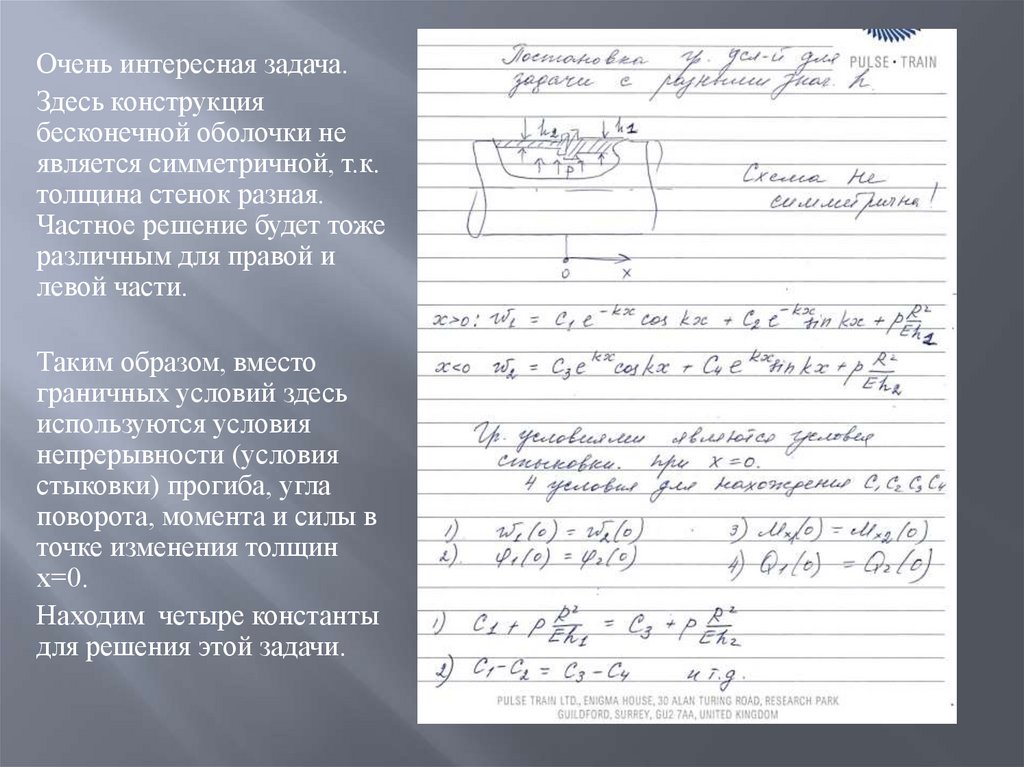 Очень интересная задача.
Здесь конструкция
бесконечной оболочки не
является симметричной, т.к.
толщина стенок разная.
Частное решение будет тоже
различным для правой и
левой части.
Таким образом, вместо
граничных условий здесь
используются условия
непрерывности (условия
стыковки) прогиба, угла
поворота, момента и силы в
точке изменения толщин
x=0.
Находим четыре константы
для решения этой задачи.
PULSE • TRAIN
Постановка гр. усл-й для
задачи с разными знач. h.
h2 h1
P
Схема не
симметрична!
0 x
x>0: w1 = C1 e^-kx cos kx + C2 e^-kx sin kx + p R²/Eh1
x<0 w2 = C3 e^kx cos kx + C4 e^kx sin kx + p R²/Eh2
Гр. условиями являются условия
стыковки. при x=0.
4 условия для нахождения C1 C2 C3 C4
1) w1(0) = w2(0) 3) Mx1(0) = Mx2(0)
2). φ1(0) = φ2(0) 4) Q1(0) = Q2(0)
1) C1 + p R²/Eh1 = C3 + p R²/Eh2
2) C1 - C2 = C3 - C4 и т.д.
PULSE TRAIN LTD., ENIGMA HOUSE, 30 ALAN TURING ROAD, RESEARCH PARK
GUILDFORD, SURREY, GU2 7AA, UNITED KINGDOM